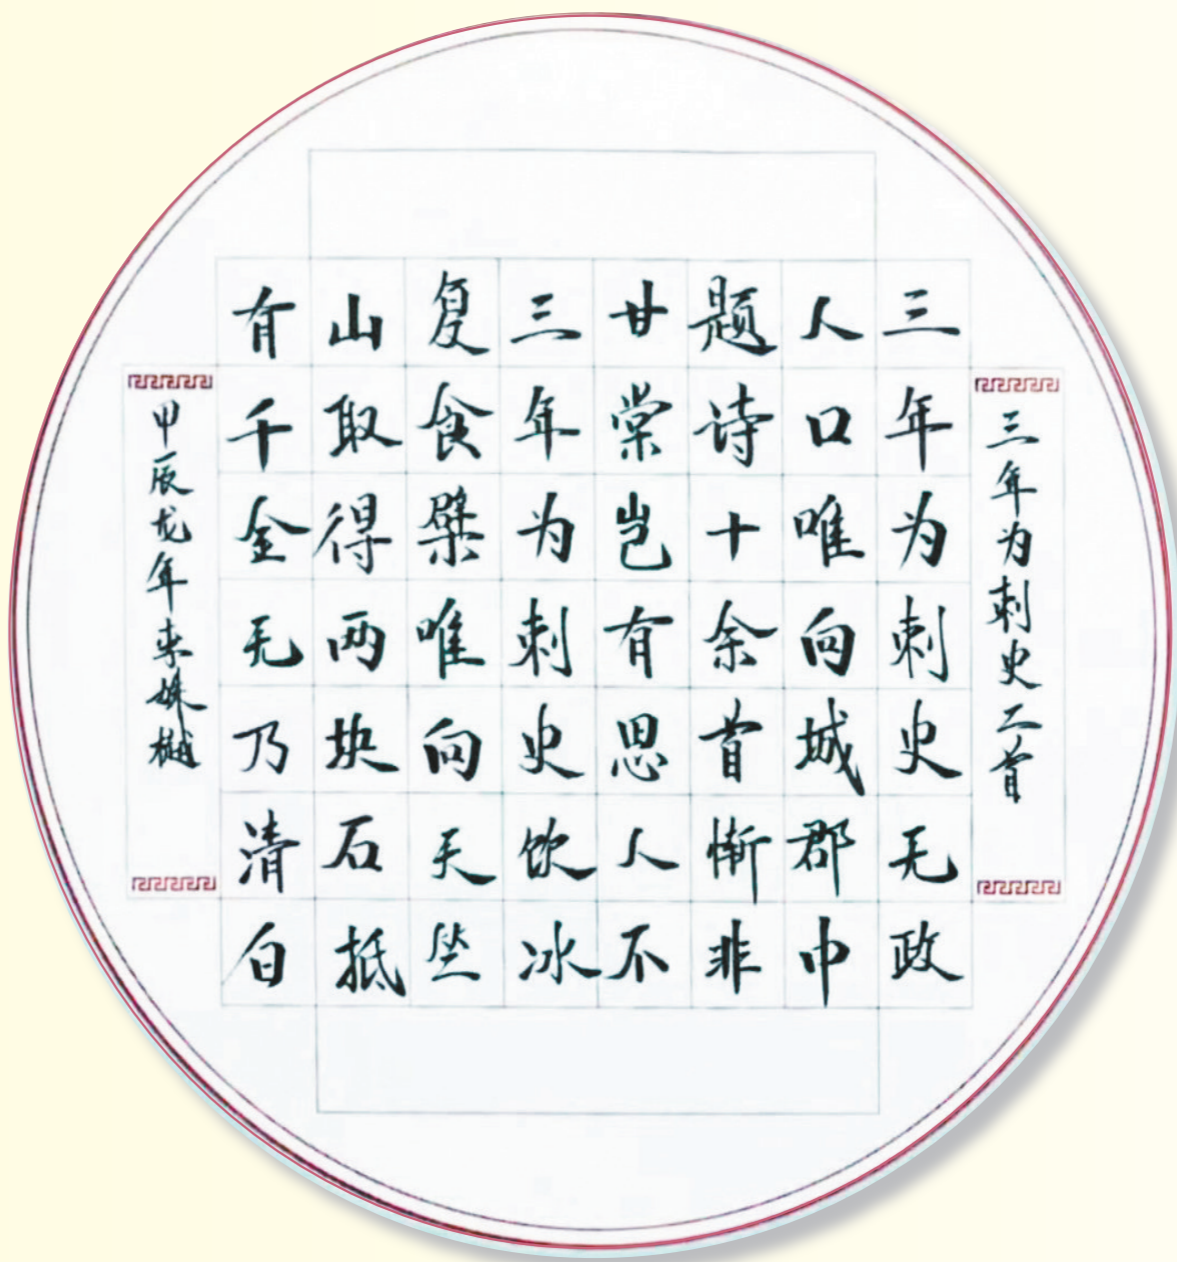 三年为刺史二首
三年为刺史无政
人口唯向城郡中
题诗十余首惭非
甘棠岂有思人不
三年为刺史饮冰
复食檗唯向天竺
山取得两块石抵
有千金无乃清白
甲辰龙年姝樾